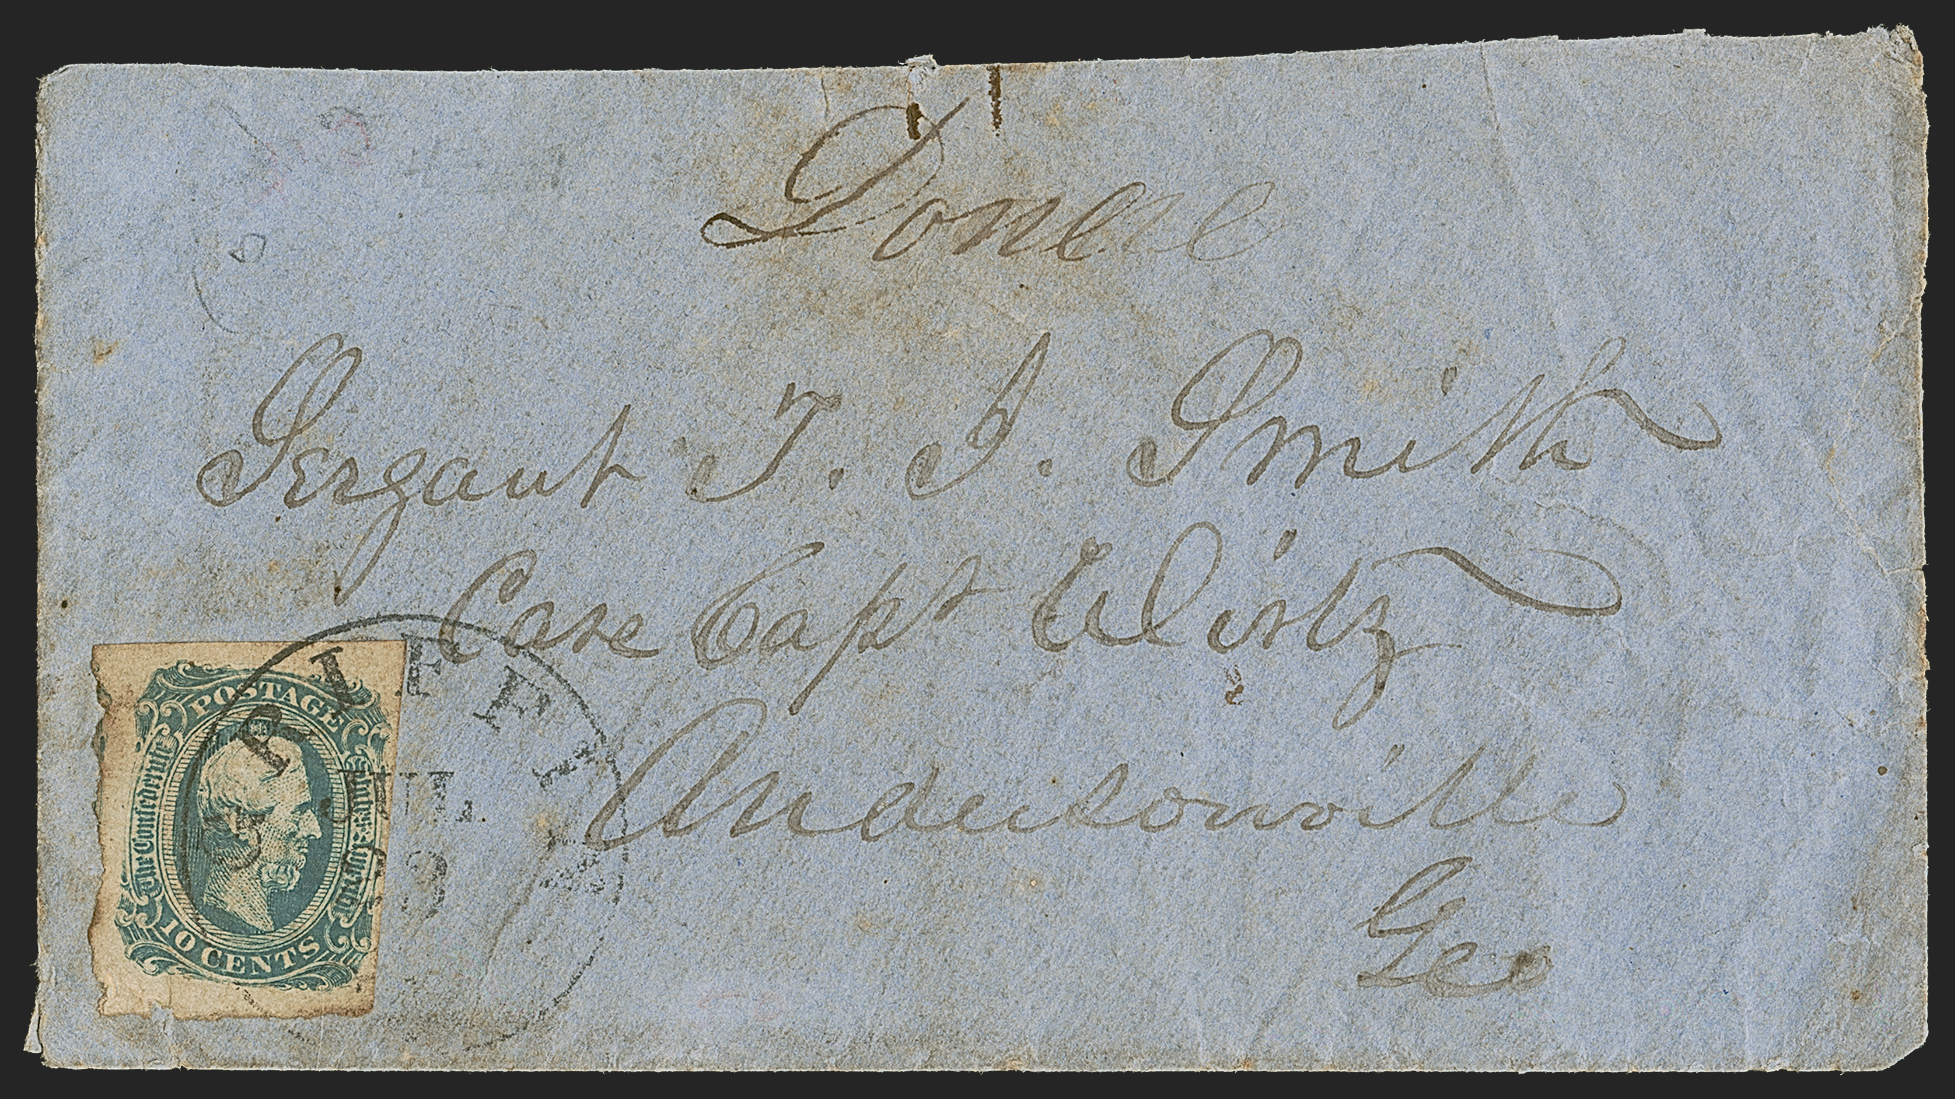 Sergant T. J. Smith
Care Capt Wirtz
Andersonville
Geo
GRIFFIN
JUL
POSTAGE
The Confederate States of America
10 CENTS